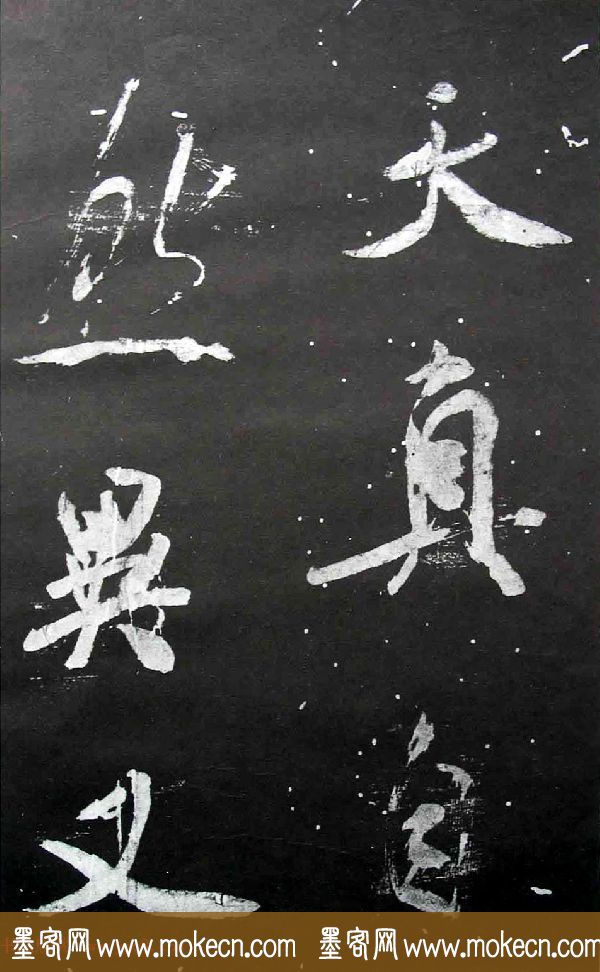 天真
然異又
墨客网 www.mokecn.com 墨客网 www.mokecn.com